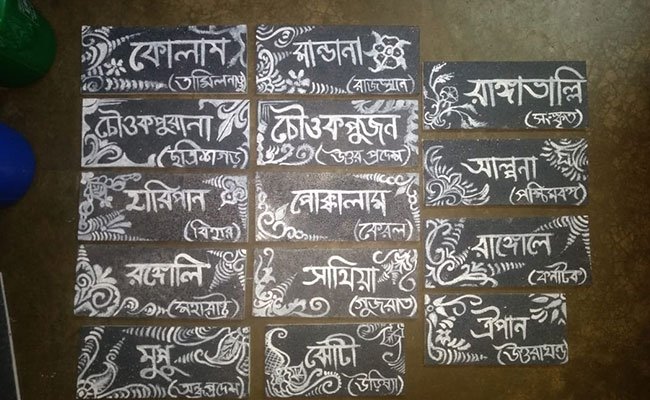 কোলাম
(তামিলনাড়ু)
চৌওকপুরানা
(ছত্রিশগড়)
যারিপান
(বিহার)
রঙ্গোলি
(মহারাষ্ট্র)
মুগ্গু
(অন্ধ্রপ্রদেশ)
মান্ডানা
(রাজস্থান)
চৌওকপুজন
(উত্তর প্রদেশ)
পোক্কালাম
(কেরল)
সাথিয়া
(গুজরাত)
ঝোটী
(উড়িষ্যা)
রাঙ্গাভাল্লি
(সংস্কৃত)
আল্পনা
(পশ্চিমবঙ্গ)
রাঙ্গোলে
(কর্নাটক)
ঐপান
(উত্তরাখন্ড)